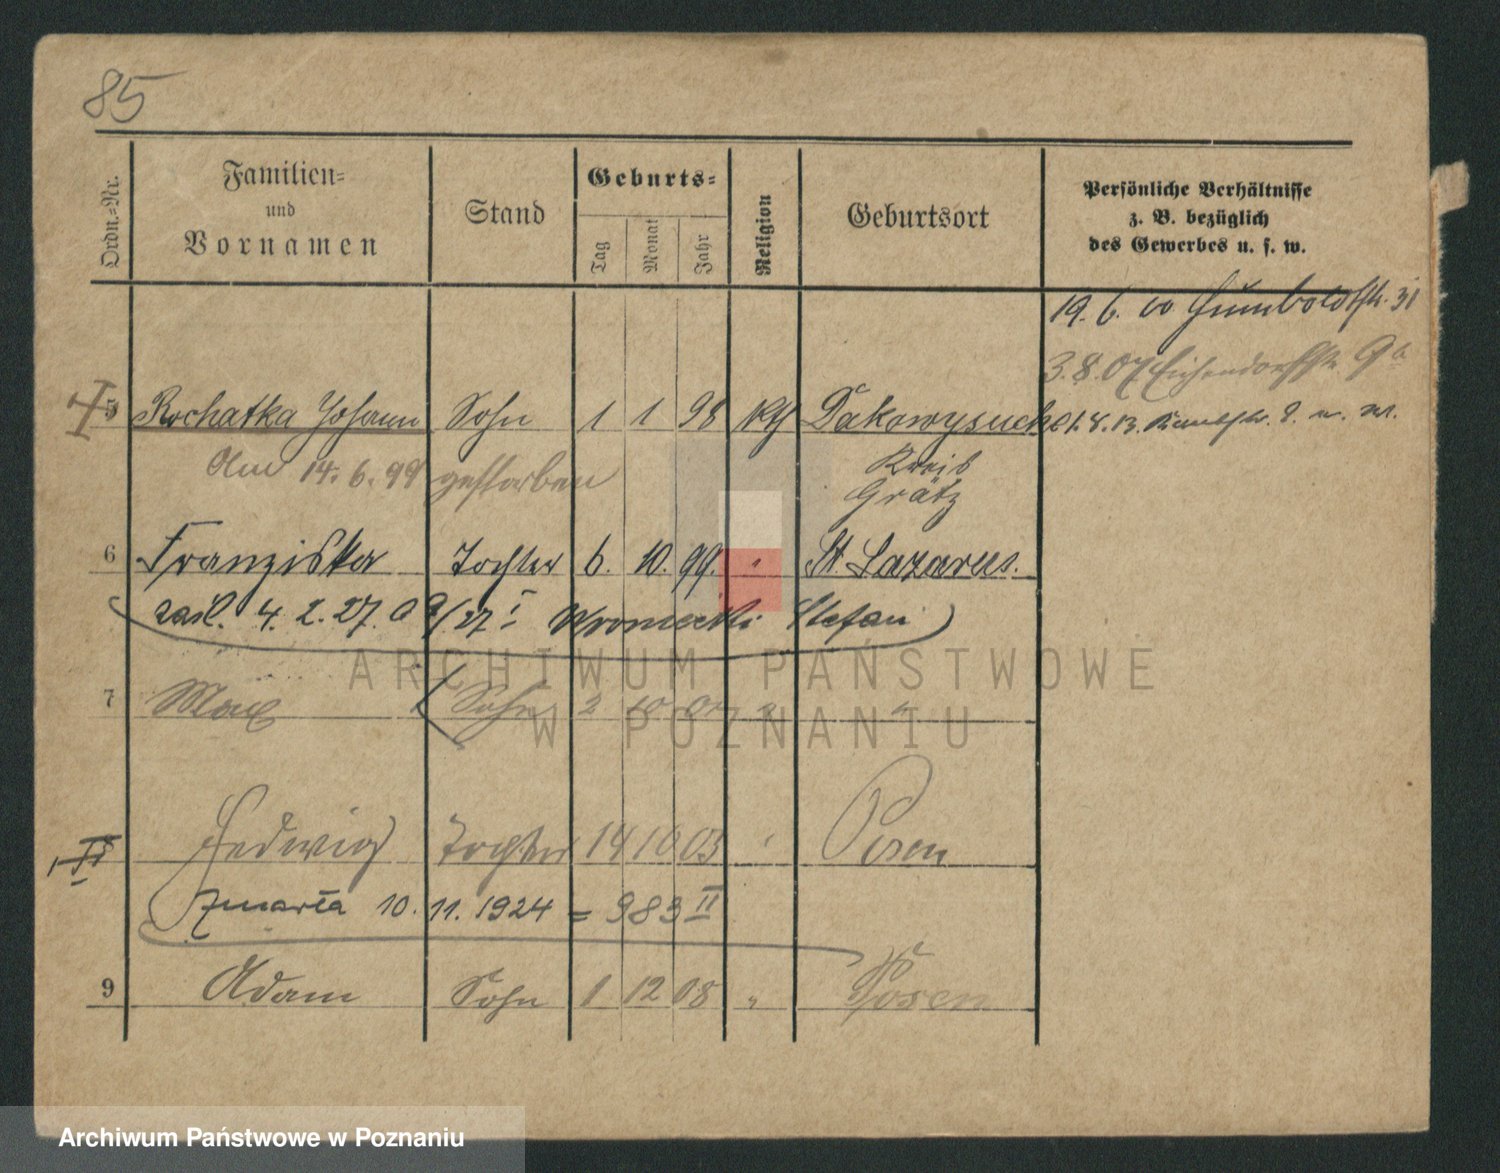 85
Ordn.-Nr.
Familien-
und
Vornamen
Stand
Geburts-
Tag Monat Jahr
Religion
Geburtsort
Persönliche Verhältnisse
z. B. bezüglich
des Gewerbes u. s. w.
19. 6. 00 Humboldtstr. 31
3. 8. 07 Eichendorffstr. 9a
5 Rochatka Johann Sohn 1 1 98 kth Dakowysuche
1. 4. 13.
Am 14. 6. 99 gestorben
Kreis
Grätz
6 Franziska Tochter 6. 10. 99. " St Lazarus.
zaśl. 4. 2. 27. 09/27 I Wroniecki Stefan
7 Max Sohn 2 10 "
Hedwig Tochter 14 10 03 " Posen
zmarła 10. 11. 1924 = 983 II
9 Adam Sohn 1 12 08 " Posen
ARCHIWUM PAŃSTWOWE
W POZNANIU
Archiwum Państwowe w Poznaniu